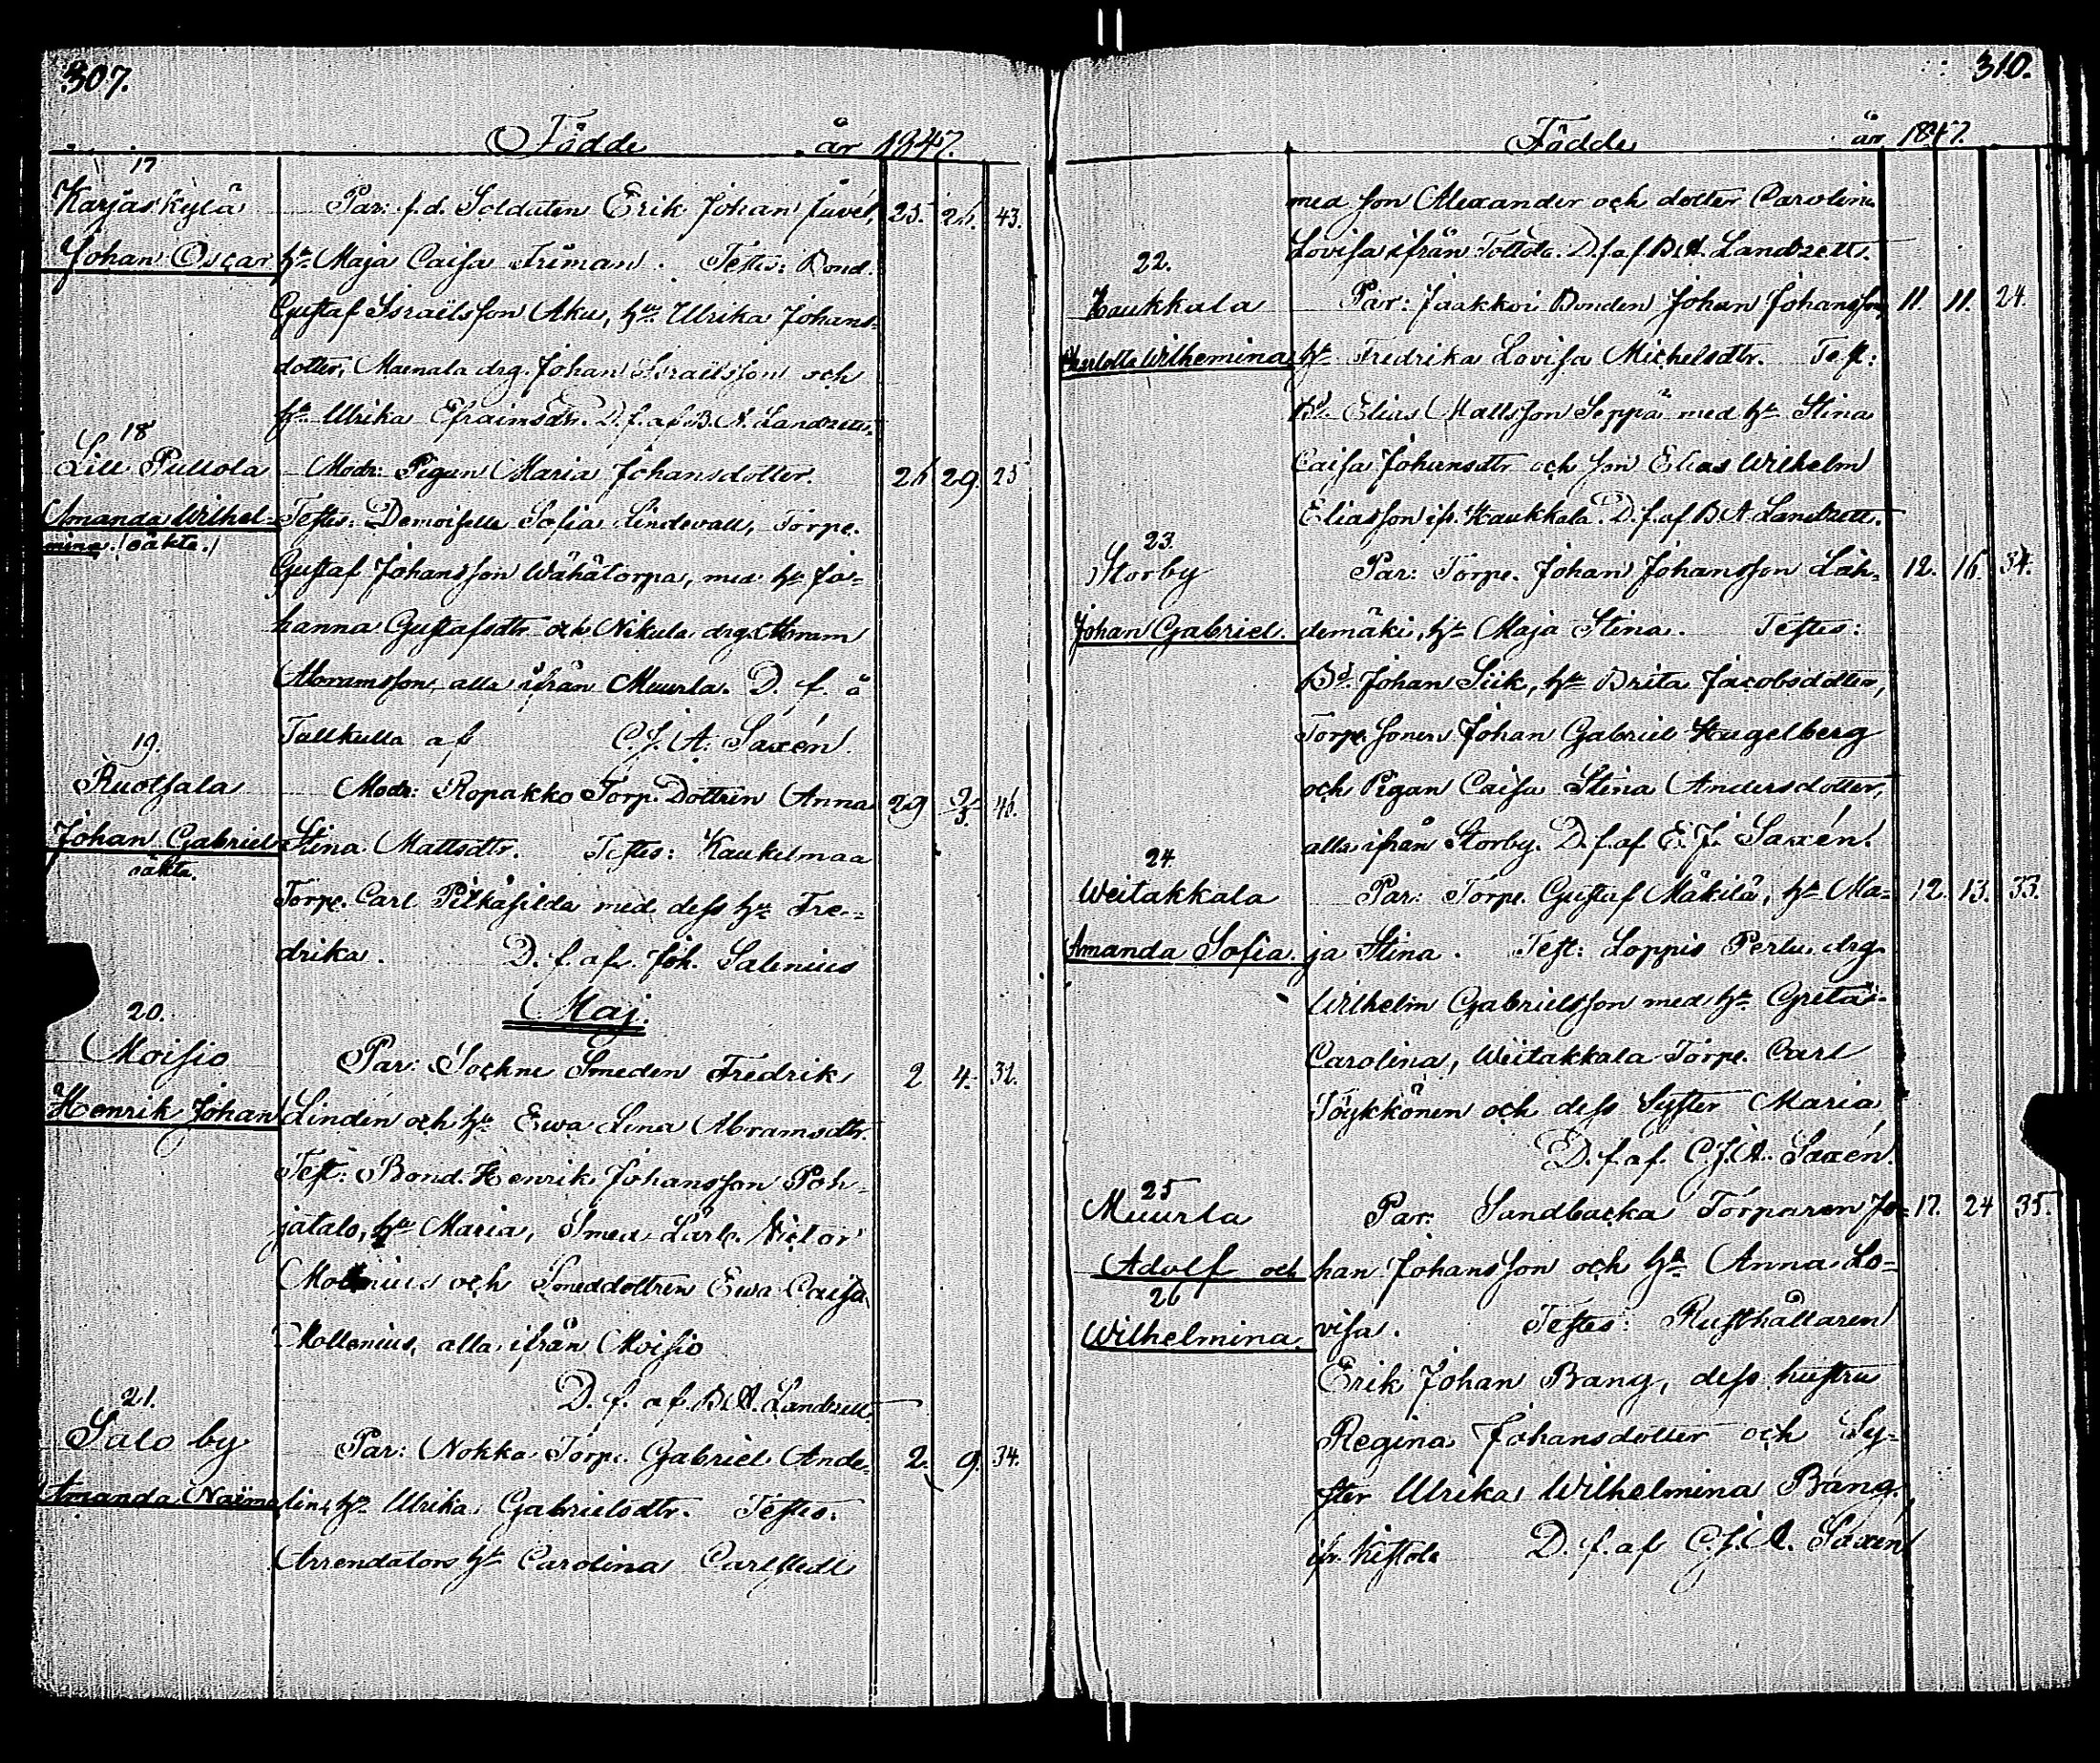 307.
Födde år 1847.
17
Karjaskylä Par: f.d. Soldaten Erik Johan Juvel, 25. 26. 43.
Johan Oscar hu Maja Caisa Friman. Testes: Bond.
Gustaf Israëlsson Aku, hu Ulrika Johans-
dotter, Maenala drg. Johan Israëlsson och
hu Ulrika Efraimsdtr. D.f. af B. A. Landzett.
18
Lill Pullola Modr: Pigan Maria Johansdotter. 26 29. 25
Amanda Wilhel- Testes: Demoiselle Sofia Lindevall, Torpe.
mina. (oäkta.)
Gustaf Johansson Wähätorpa, med hu Jo-
hanna Gustafsdtr och Nikula drg. Abram
Abramsson, alla ifrån Muurla. D. f. å
Tullkulla af C. J. A. Saxén.
19.
Ruotsala Modr: Ropakko Torp. Dottren Anna 29 2/5 46.
Johan Gabriel Stina Mattsdtr. Testes: Kaukelmaa
oäkta.
Torpe. Carl Pitkäsilda med dess hu Fre-
drika. D. f. af Joh. Salenius
Maj.
20.
Moisio Par: Sockne Smeden Fredrik 2 4. 32.
Henrik Johan Linden och hu Ewa Lina Abramsdtr.
Test: Bond. Henrik Johansson Poh-
jatalo, hu Maria, Smed Lärl. Victor
Mollenius och Smeddottren Ewa Caisa
Mollenius, alla ifrån Moisio
D. f. af B. A. Landzett.
21.
Salo by Par: Nokka Torp. Gabriel Ande- 2. 9. 34.
Amanda Naëma lin, hu Ulrika Gabrielsdtr. Testes.
Arrendators hu Carolina Carlstedt
310.
Födde år 1847.
med son Alexander och dotter Carolina
Lovisa ifrån Tottola. D.f. af B.A. Landzett.
22.
Haukkala Par: Jaakkoi Bonden Johan Johansson, 11. 11. 24.
Charlotta Wilhemina hu Fredrika Lovisa Michelsdtr. Test:
Bd. Elias Mattsson Seppä med hu Stina
Caisa Johansdtr och son Elias Wilhelm
Eliasson ifr. Haukkala. D.f. af B.A. Landzett.
23.
Storby Par: Torpe. Johan Johansson Läh- 12. 16. 34.
Johan Gabriel. demäki, hu Maja Stina. Testes:
Bd. Johan Siik, hu Brita Jacobsdotter,
Torpe Sonen Johan Gabriel Hagelberg
och Pigan Caisa Stina Andersdotter,
alla ifrån Storby. D.f. af E. J. Saxén.
24.
Weitakkala Par: Torpe. Gustaf Mäkilä, hu Ma- 12. 13. 33.
Amanda Sofia. ja Stina. Test: Loppis Pertu drg.
Wilhelm Gabrielsson med hu Greta
Carolina, Weitakkala Torpe. Carl
Töykkönen och dess Syster Maria
D.f. af C.J.A. Saxén.
25
Muurla Par: Sandbacka Torparen Jo- 17. 24 35.
Adolf och han Johansson och hu Anna Lo-
26
Wilhelmina. visa. Testes: Rusthållaren
Erik Johan Bang, dess hustru
Regina Johansdotter och Sy-
ster Ulrika Wilhelmina Bang.
ifr. Kistola D. f. af C.J.A. Saxén